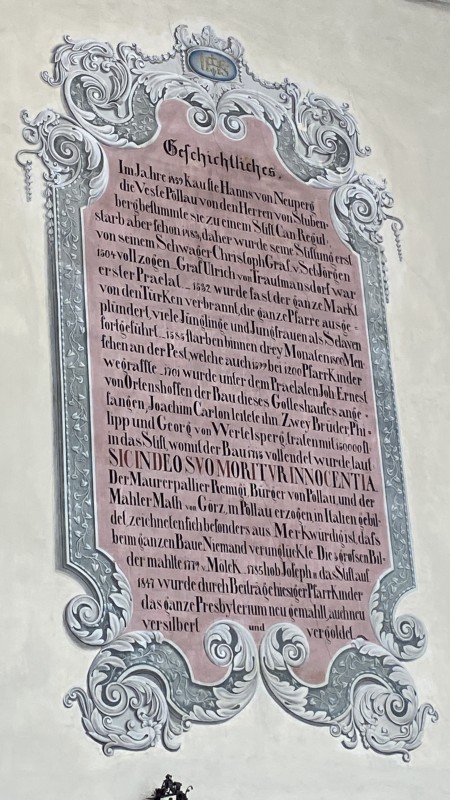 Geschichtliches.
Im Jahre 1459 kaufte Hanns von Neuperg
die Veste Pöllau von den Herren von Stuben-
berg bestimmte sie zu einem Stift Can Regul.
starb aber schon 1483, daher wurde seine Stiftung erst
von seinem Schwager Christoph Graf v St Jörgen
1504 vollzogen Graf Ulrich von Trautmansdorf war
erster Praelat 1532 wurde fast der ganze Markt
von den Türken verbrannt, die ganze Pfarre ausge=
plündert, viele Jünglinge und Jungfrauen als Sclaven
fortgeführt 1585 starben binnen drey Monaten 500 Men-
schen an der Pest, welche auch 1599 bei 1200 Pfarr Kinder
wegraffte 1701 wurde unter dem Praelaten Joh. Ernest
von Ortenshoffen der Bau dieses Gotteshauses ange=
fangen, Joachim Carlon leitete ihn Zwey Brüder Phi-
lipp und Georg von Wertelsperg traten mit 150000 fl
in das Stift, womit der Bau vollendet wurde laut
SIC IN DEO SVO MORITVR INNOCENTIA
Der Maurerpallier Remigi, Bürger von Pöllau, und der
Mahler Math von Görz, in Pöllau erzogen, in Italien gebil-
det, zeichneten sich besonders aus Merkwürdig ist, dass
beim ganzen Baue Niemand verunglückte Die 3 grossen Bil-
der mahlte 1779 v. Mölck 1785 hob Joseph II das Stift auf
1847 wurde durch Beiträge hiesiger Pfarr Kinder
das ganze Presbyterium neu gemahlt, auch neu
versilbert und vergoldet